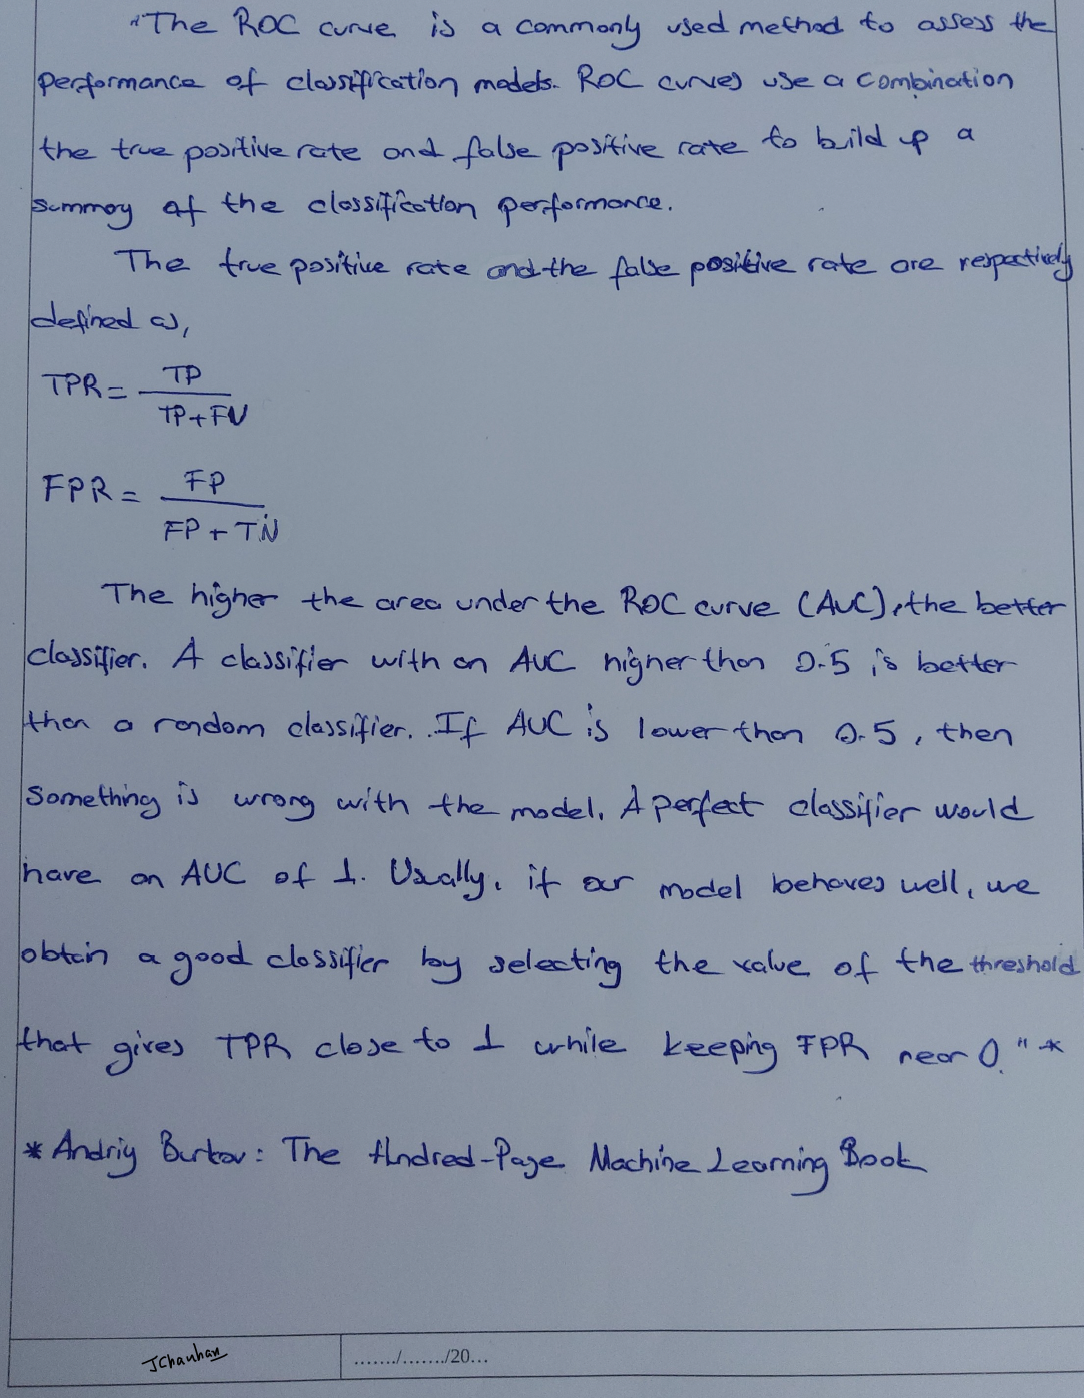 "The ROC curve is a commonly used method to assess the
performance of classification models. ROC curves use a combination
the true positive rate and false positive rate to build up a
summoy of the classification performance.
The true positive rate and the false positive rate are respectively
defined as,
TPR = TP / TP + FN
FPR = FP / FP + TN
The higher the area under the ROC curve (AUC), the better
classifier. A classifier with an AUC higher than 0.5 is better
than a random classifier. If AUC is lower than 0.5, then
something is wrong with the model. A perfect classifier would
have an AUC of 1. Usually, if our model behaves well, we
obtain a good classifier by selecting the value of the threshold
that gives TPR close to 1 while keeping FPR near 0." *
* Andriy Burkov: The Hundred-Page Machine Learning Book
JChauhan ......./......./20...